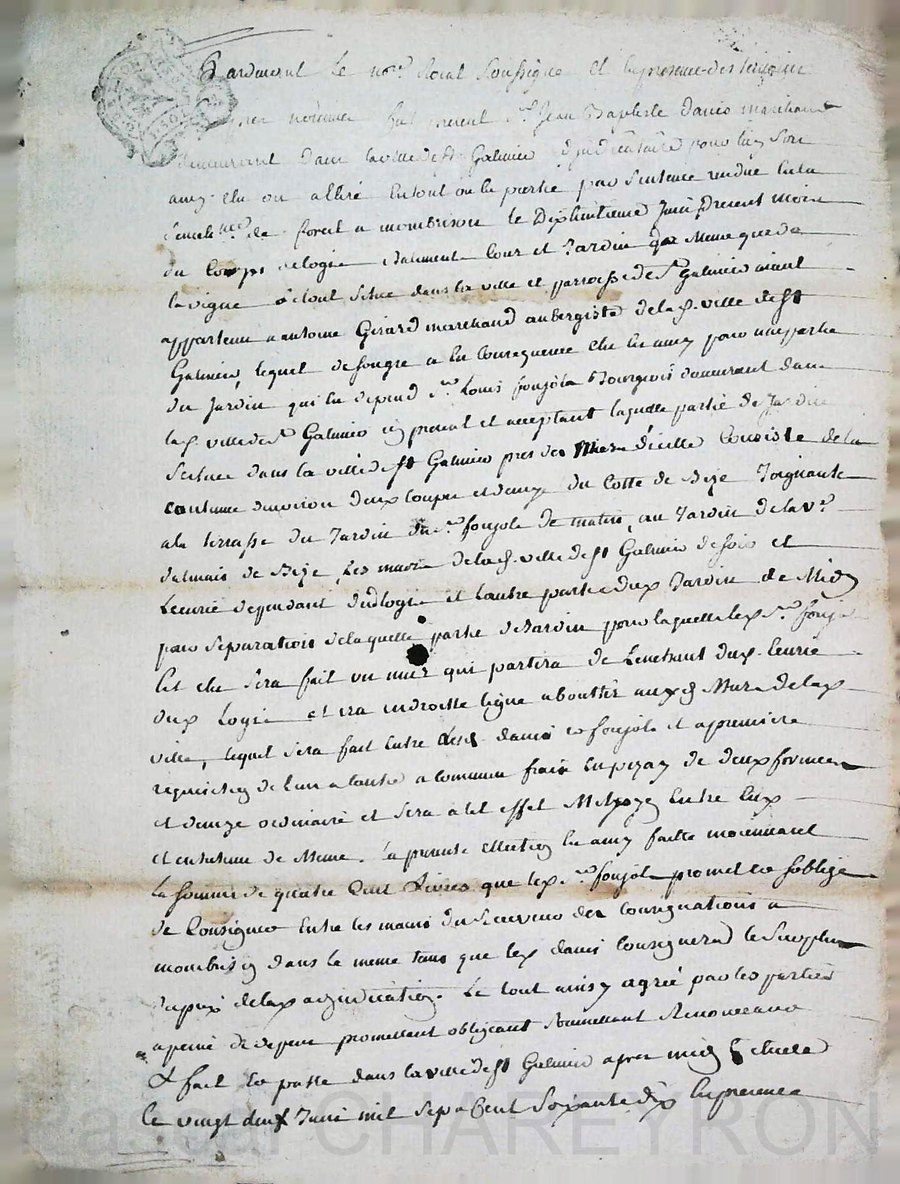 Pardevant le no.re Roial soussigné et en presence des temoins
nommés fut present s.r Jean Baptiste david marchand
demeurant dans la ville de s.t Galmier adjudicataire pour luy son
amy elu ou a elire en tout ou en partie par sentence rendue en la
de forest a montbrison le dixhuitieme Juin present mois
du corps de logis batiment cour et Jardin de meme que de
la vigne le tout situé dans la ville et parroisse de s.t Galmier aiant
appartenu a antoine Girard marchand aubergiste de lad. ville de s.t
Galmier, lequel de son gré a en consequence elu en amy pour une partie
du Jardin qui en depend s.r Louis foujols Bourgeois demeurant dans
lad. ville de s.t Galmier icy present et acceptant laquelle partie de Jardin
scituée dans la ville de s.t Galmier pres des murs d'icelle consiste de la
contenue d'environ deux coupes et demy du cotté de Bize Joignante
a la terrasse du Jardin du s.r foujols de matin, au Jardin de la v.e
de Bize, les murs de lad. ville de s.t Galmier de soir et
L'ecurie dependant dud logis et l'autre partie dud Jardin de midy
pour separation de laquelle partie de Jardin pour laquelle led s.r foujols
est elu sera fait un mur qui partira de l'enchant dud. ecurie
dud Logis et ira en droitte ligne aboutir auxd murs de lad
ville, lequel sera fait entre lesd. david et foujols et a premiere
requisition de l'un a l'autre a communs fraix en pizay de deux
et demye ordinaire et sera a cet effet mitoyen entre eux
et entretenu de meme. la presente ellection en amy faitte moiennant
la somme de quatre Cent Livres que led s.r foujols promet et s'oblige
de consigner entre les mains du Receveur des consignations a
montbrison dans le meme tems que led david consignera le surplus
du prix de lad adjudication. Le tout ainsy agréé par les parties
a peine de depens promettant obligeant soumettant Renonceant
& fait et passé dans la ville de s.t Galmier apres midy
le vingt deux Juin mil sept Cent soixante dix en presence
Pascal CHAREYRON